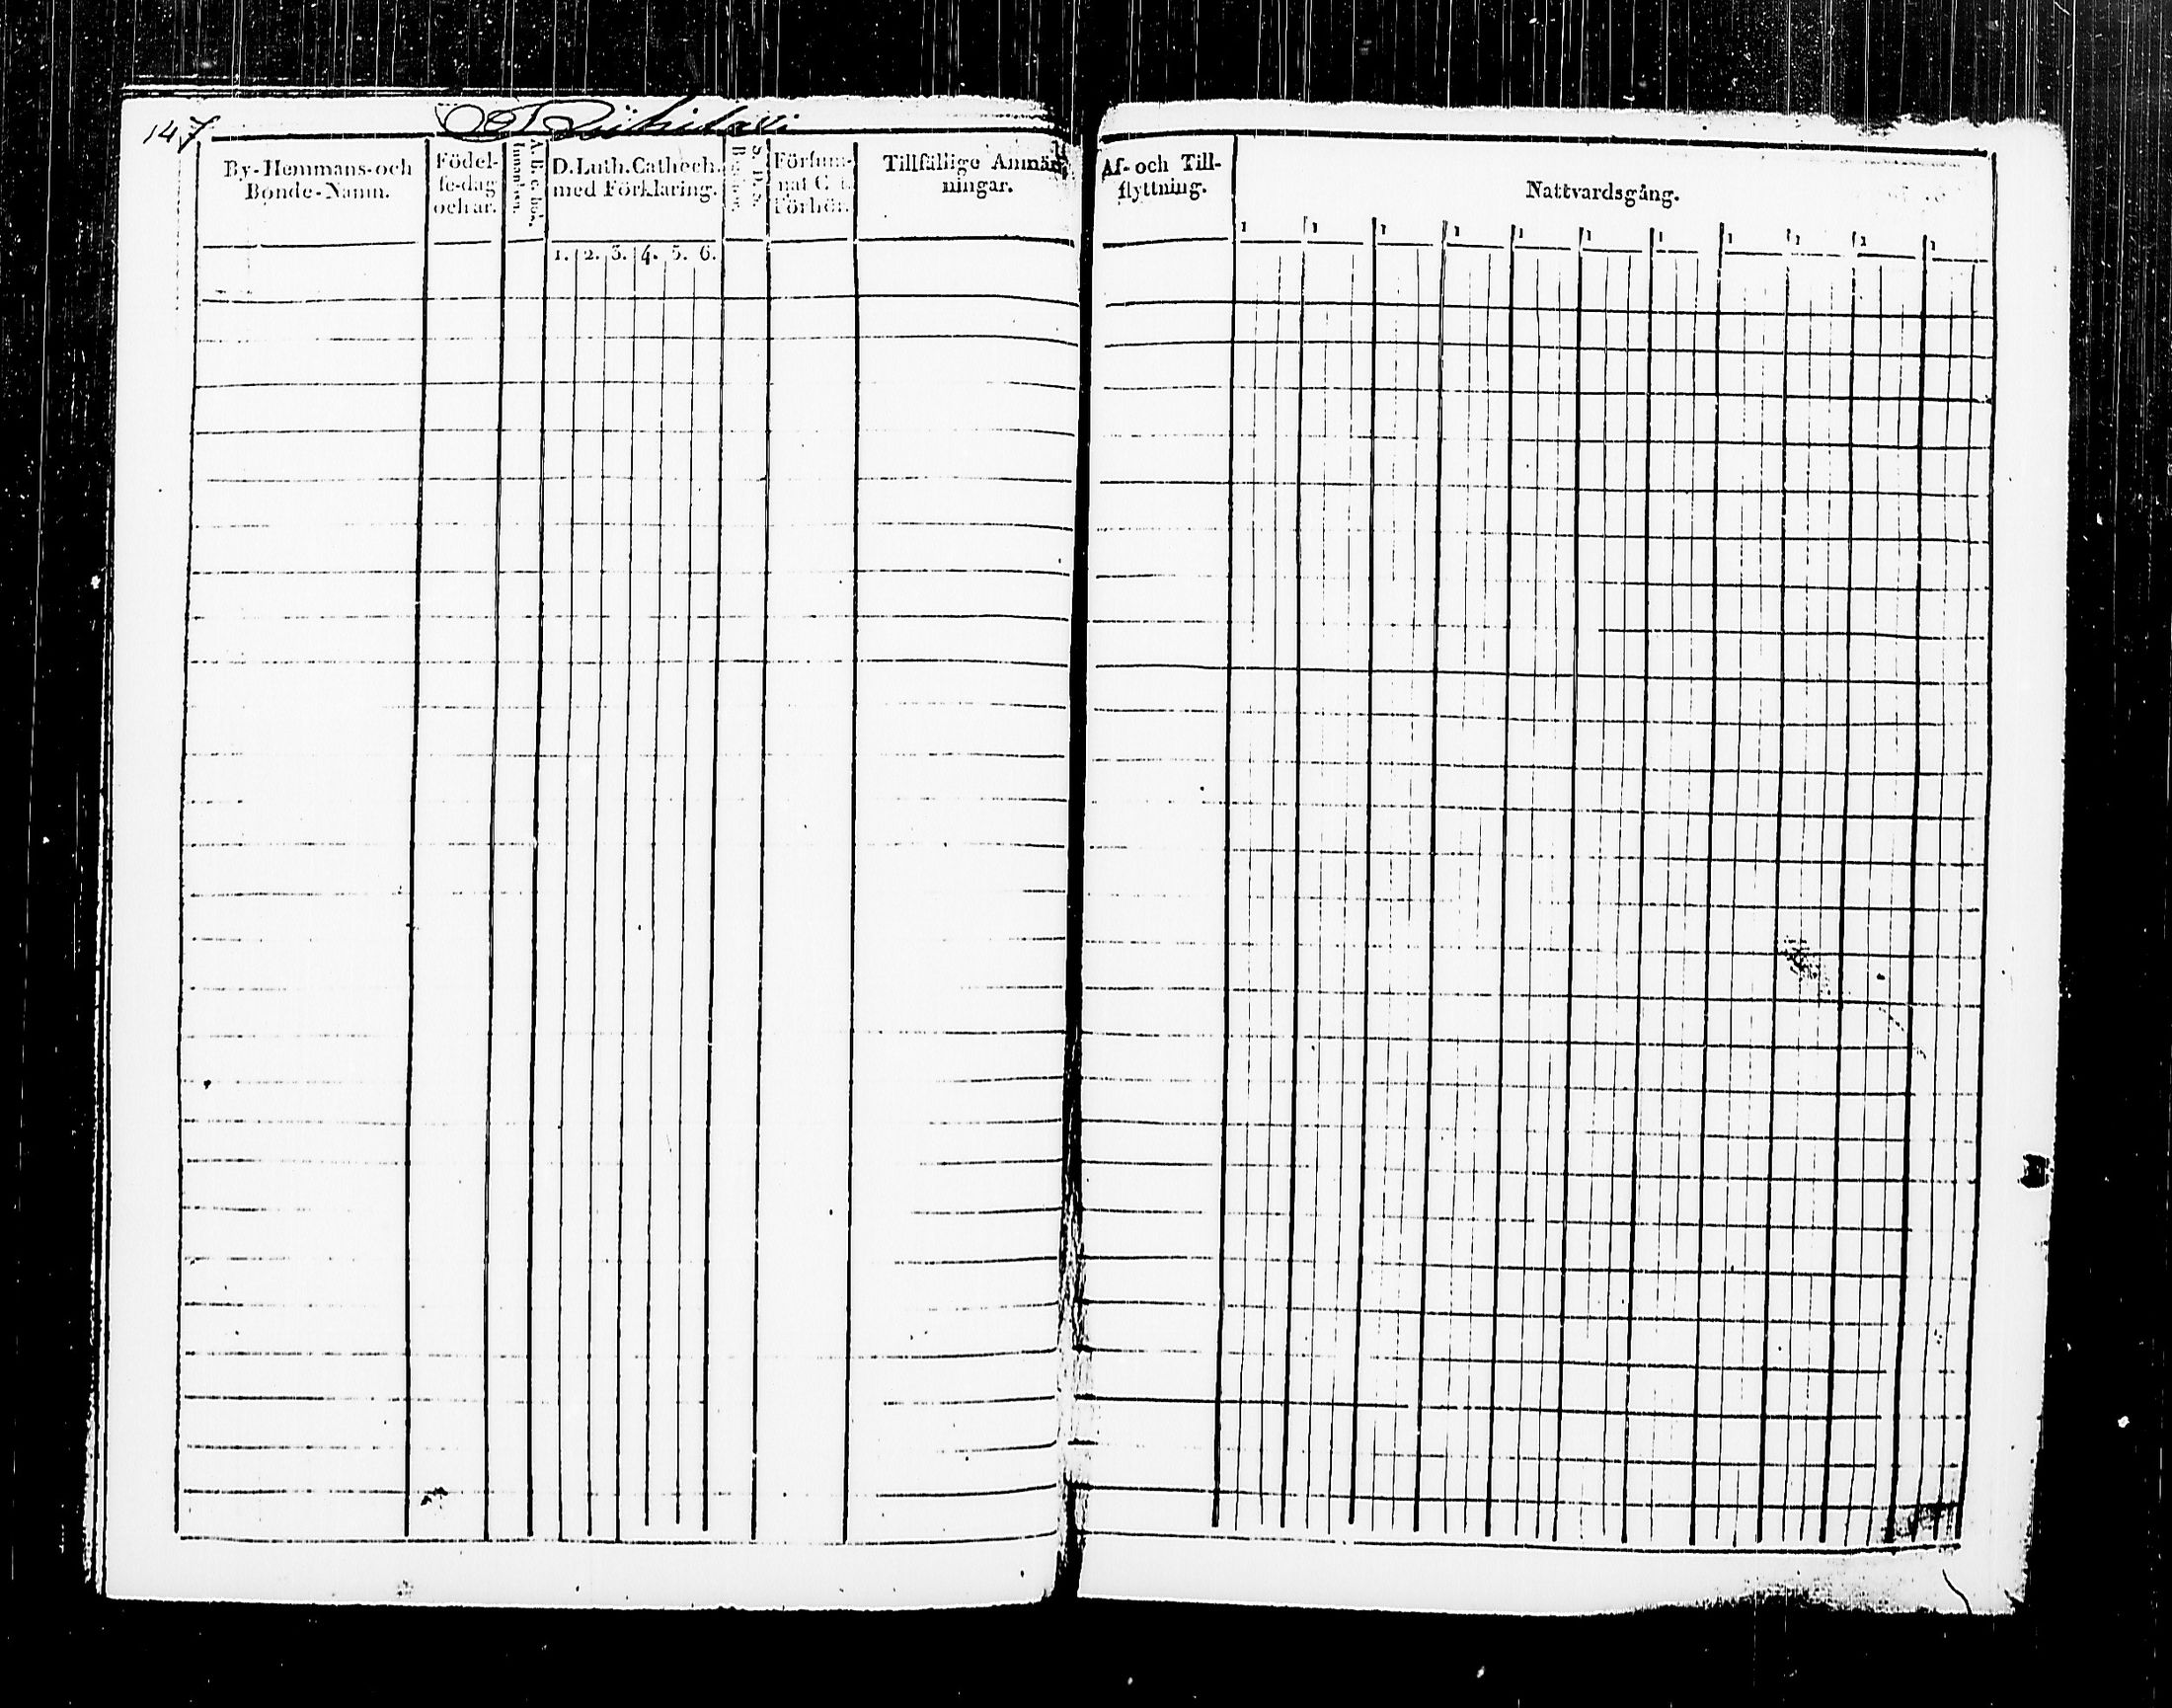 147
By-Hemmans-och
Bonde-Namn.
Födel-
se-dag
och år.
Innan
A.B.C.bok.
D. Luth. Cathech.
med Förklaring.
1. 2. 3. 4. 5. 6.
Försum-
nat C
Förhör.
Tillfällige Anmärk-
ningar.
Af- och Till-
flyttning.
Nattvardsgång.
1 1 1 1 1 1 1 1 1 1 1